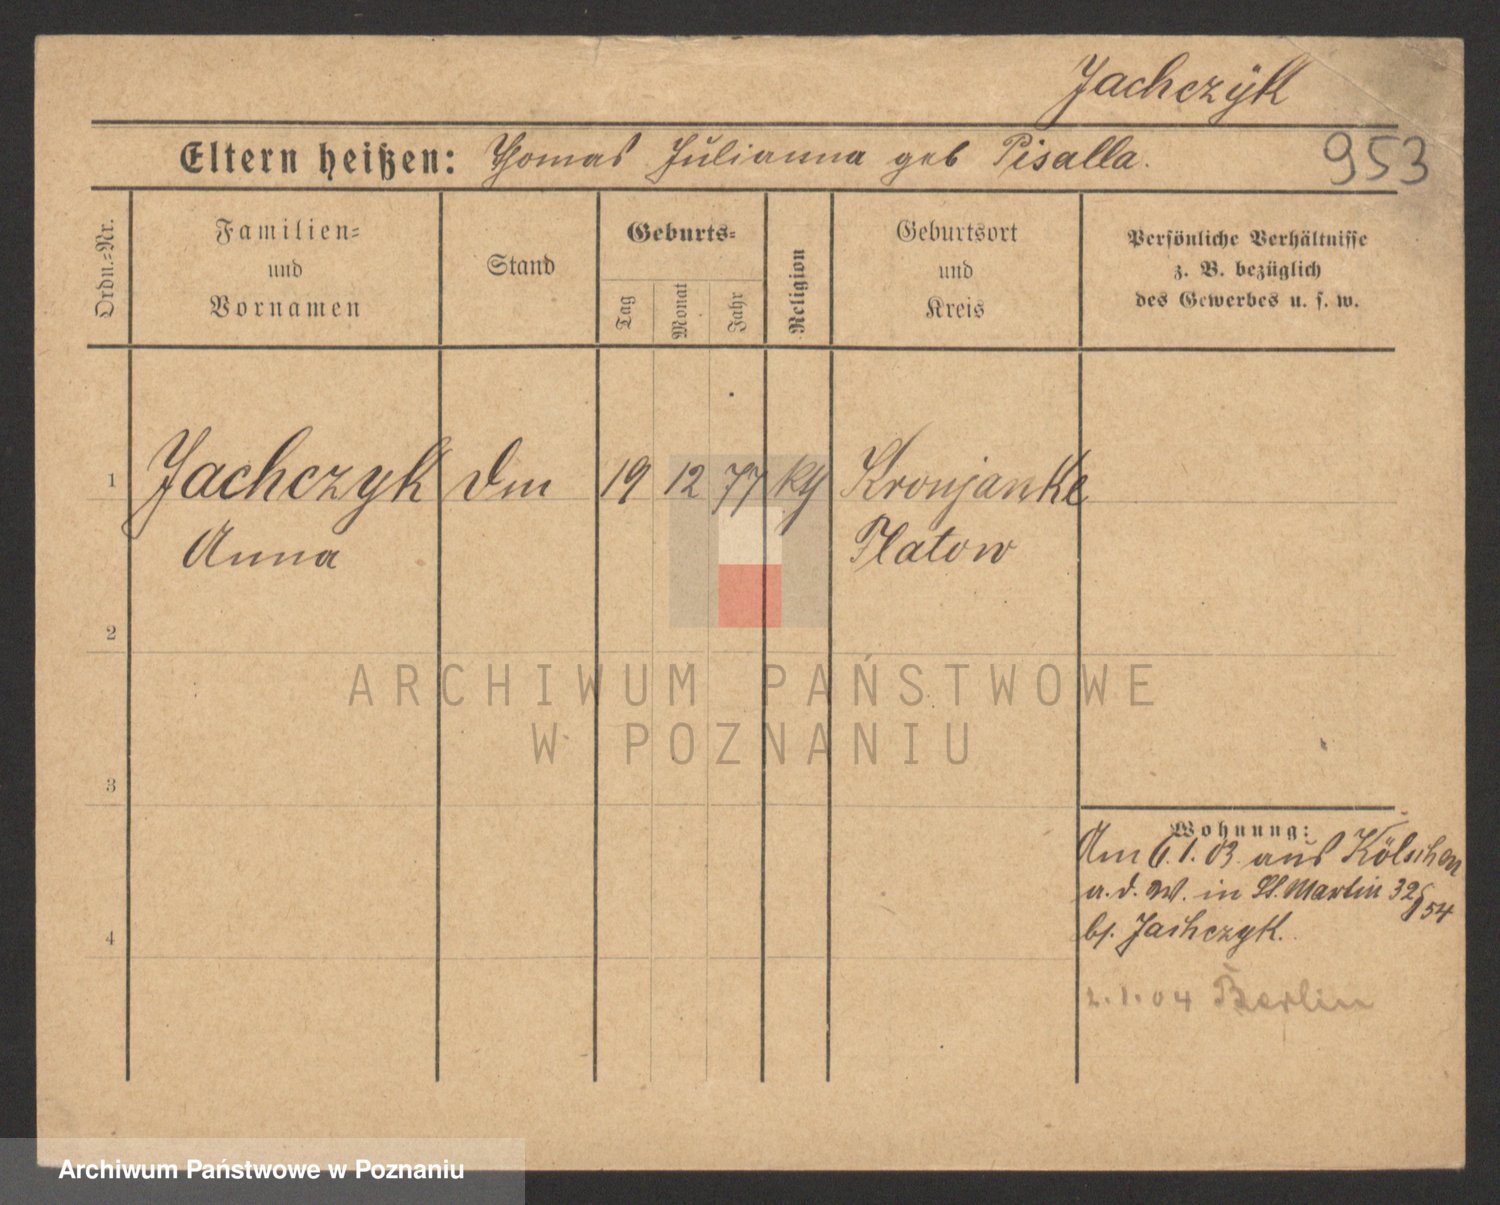 Jachczÿk
Eltern heißen: Thomas Julianna geb Pisalla.
953
Ordn.-Nr.
Familien-
und
Vornamen
Stand
Geburts-
Tag
Monat
Jahr
Religion
Geburtsort
und
Kreis
Persönliche Verhältnisse
z. B. bezüglich
des Gewerbes u. s. w.
1 Jachczyk 19 12 77 Kronjanke
Anna Flatow
2
ARCHIWUM PAŃSTWOWE
W POZNANIU
3
Wohnung:
Am 6.1.03 aus Kölschen
a. d. W. in St. Martin 32
154
4
bj. Jachczyk.
2.1.04 Berlin
Archiwum Państwowe w Poznaniu